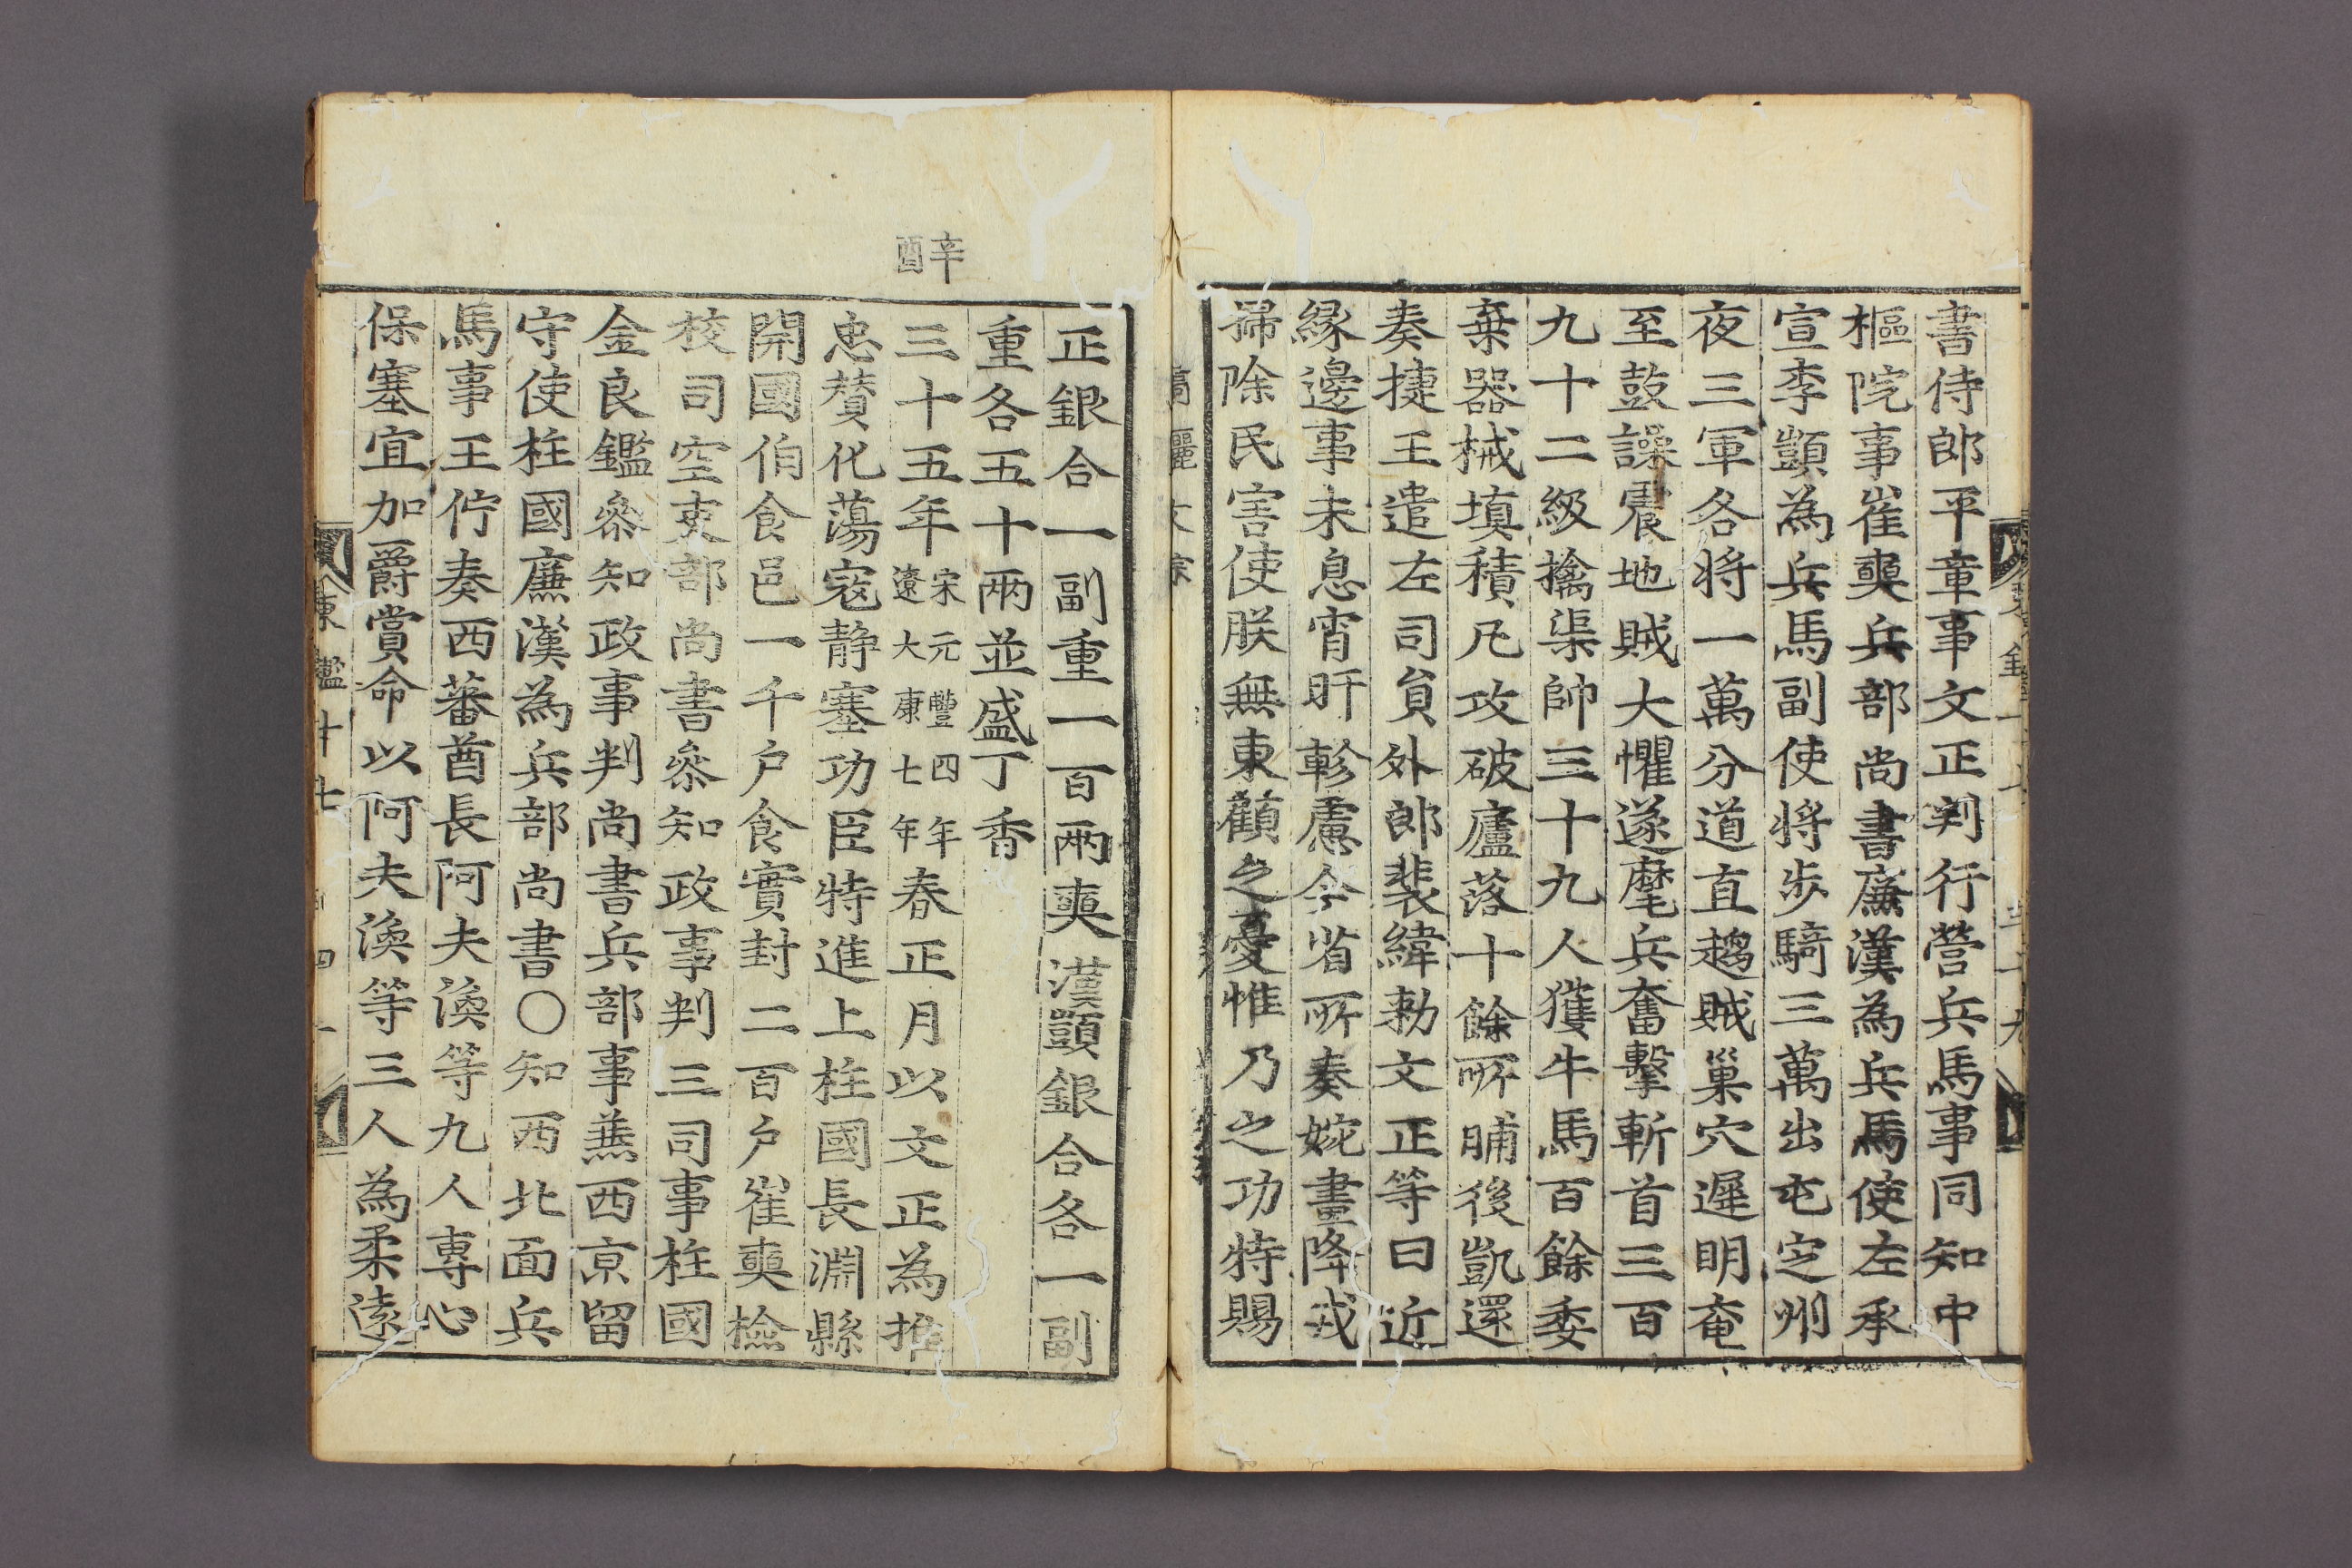 書侍郎平章事文正判行營兵馬事同知中
樞院事崔奭兵部尚書廉漢為兵馬使左承
宣李顗為兵馬副使將步騎三萬出屯定州
夜三軍各將一萬分道直趨賊巢穴遲明奄
至鼓譟震地賊大懼遂麾兵奮擊斬首三百
九十二級擒渠帥三十九人獲牛馬百餘委
棄器械填積凡攻破廬落十餘所晡後凱還
奏捷王遣左司員外郎裴緯勑文正等曰近
緣邊事未息宵旰軫慮今省所奏婉畫降戎
掃除民害使朕無東顧之憂惟乃之功特賜
高麗文宗
正銀合一副重一百兩奭漢顗銀合各一副
重各五十兩並盛丁香
辛酉
三十五年宋元豐四年遼大康七年春正月以文正為推
忠賛化蕩寇静塞功臣特進上柱國長淵縣
開國伯食邑一千户食實封二百户崔奭檢
校司空吏部尚書叅知政事判三司事柱國
金良鑑叅知政事判尚書兵部事燕西京留
守使柱國廉漢為兵部尚書〇知西北面兵
馬事王佇奏西蕃酋長阿夫渙等九人專心
保塞宜加爵賞命以阿夫渙等三人為柔遠
東鑑十七